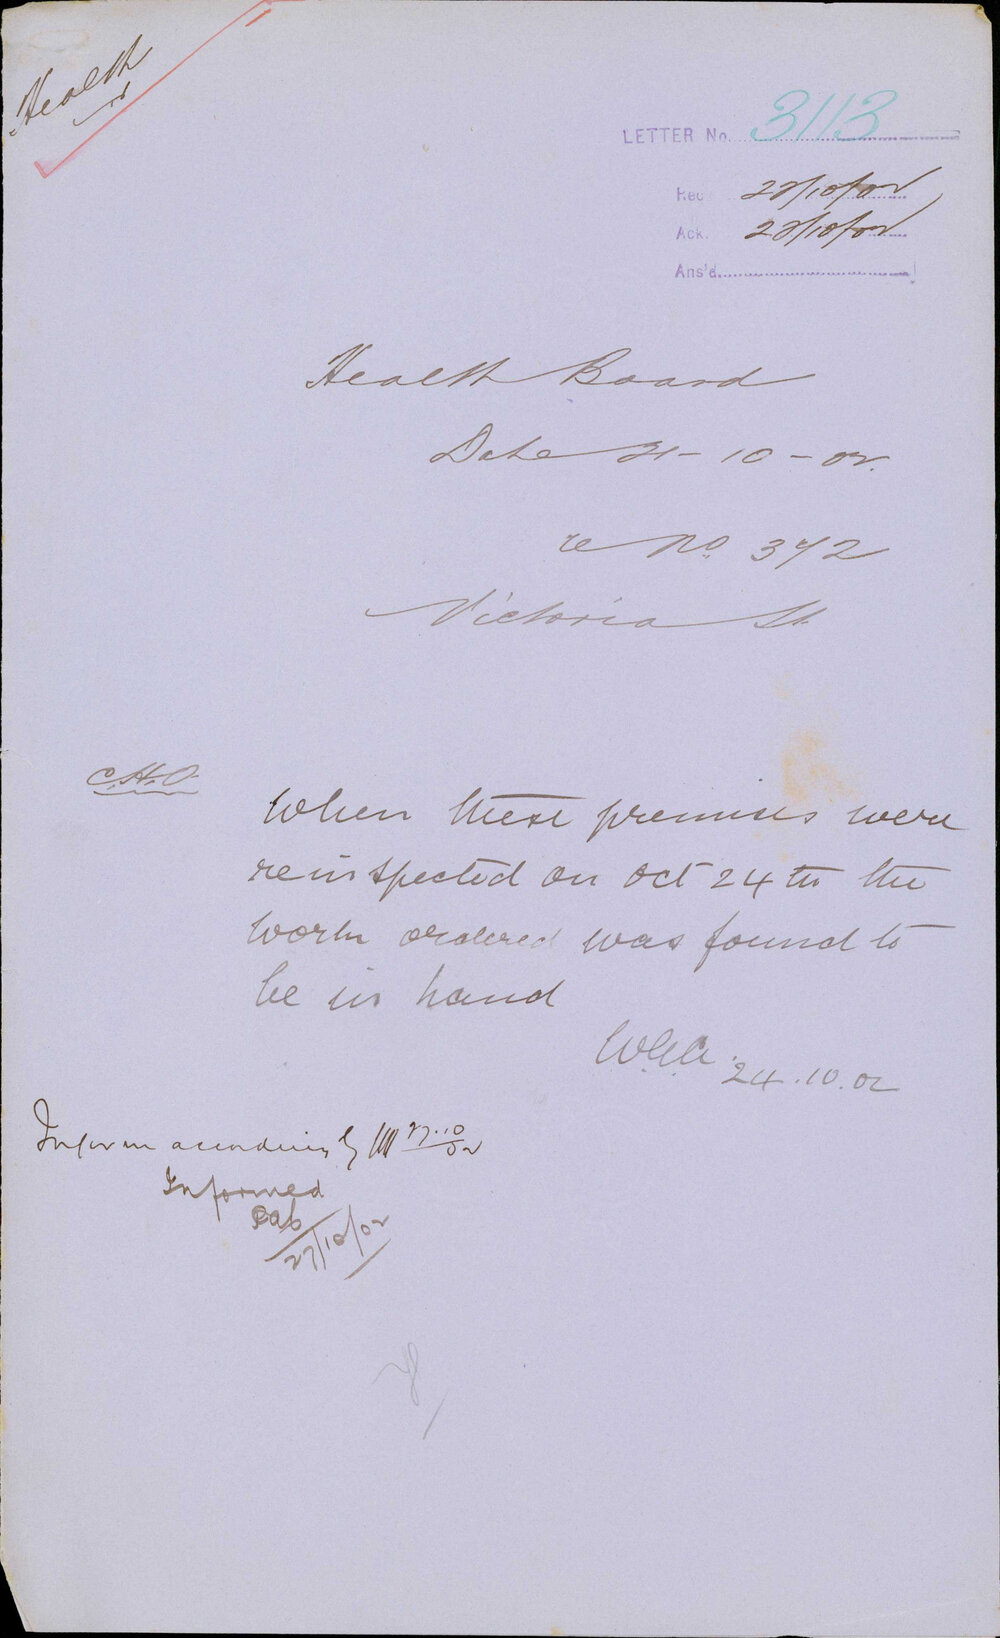 Health
LETTER No. 3113
Rec 22/10/02
Ack. 22/10/02
Ans'd.
Health Board
Date 21-10-02.
re No. 372
Victoria St
C.H.O.
When these premises were
reinspected on Oct 24th the
work ordered was found to
be in hand
24.10.02
Inform accordingly 27.10/02
Informed
27/10/02